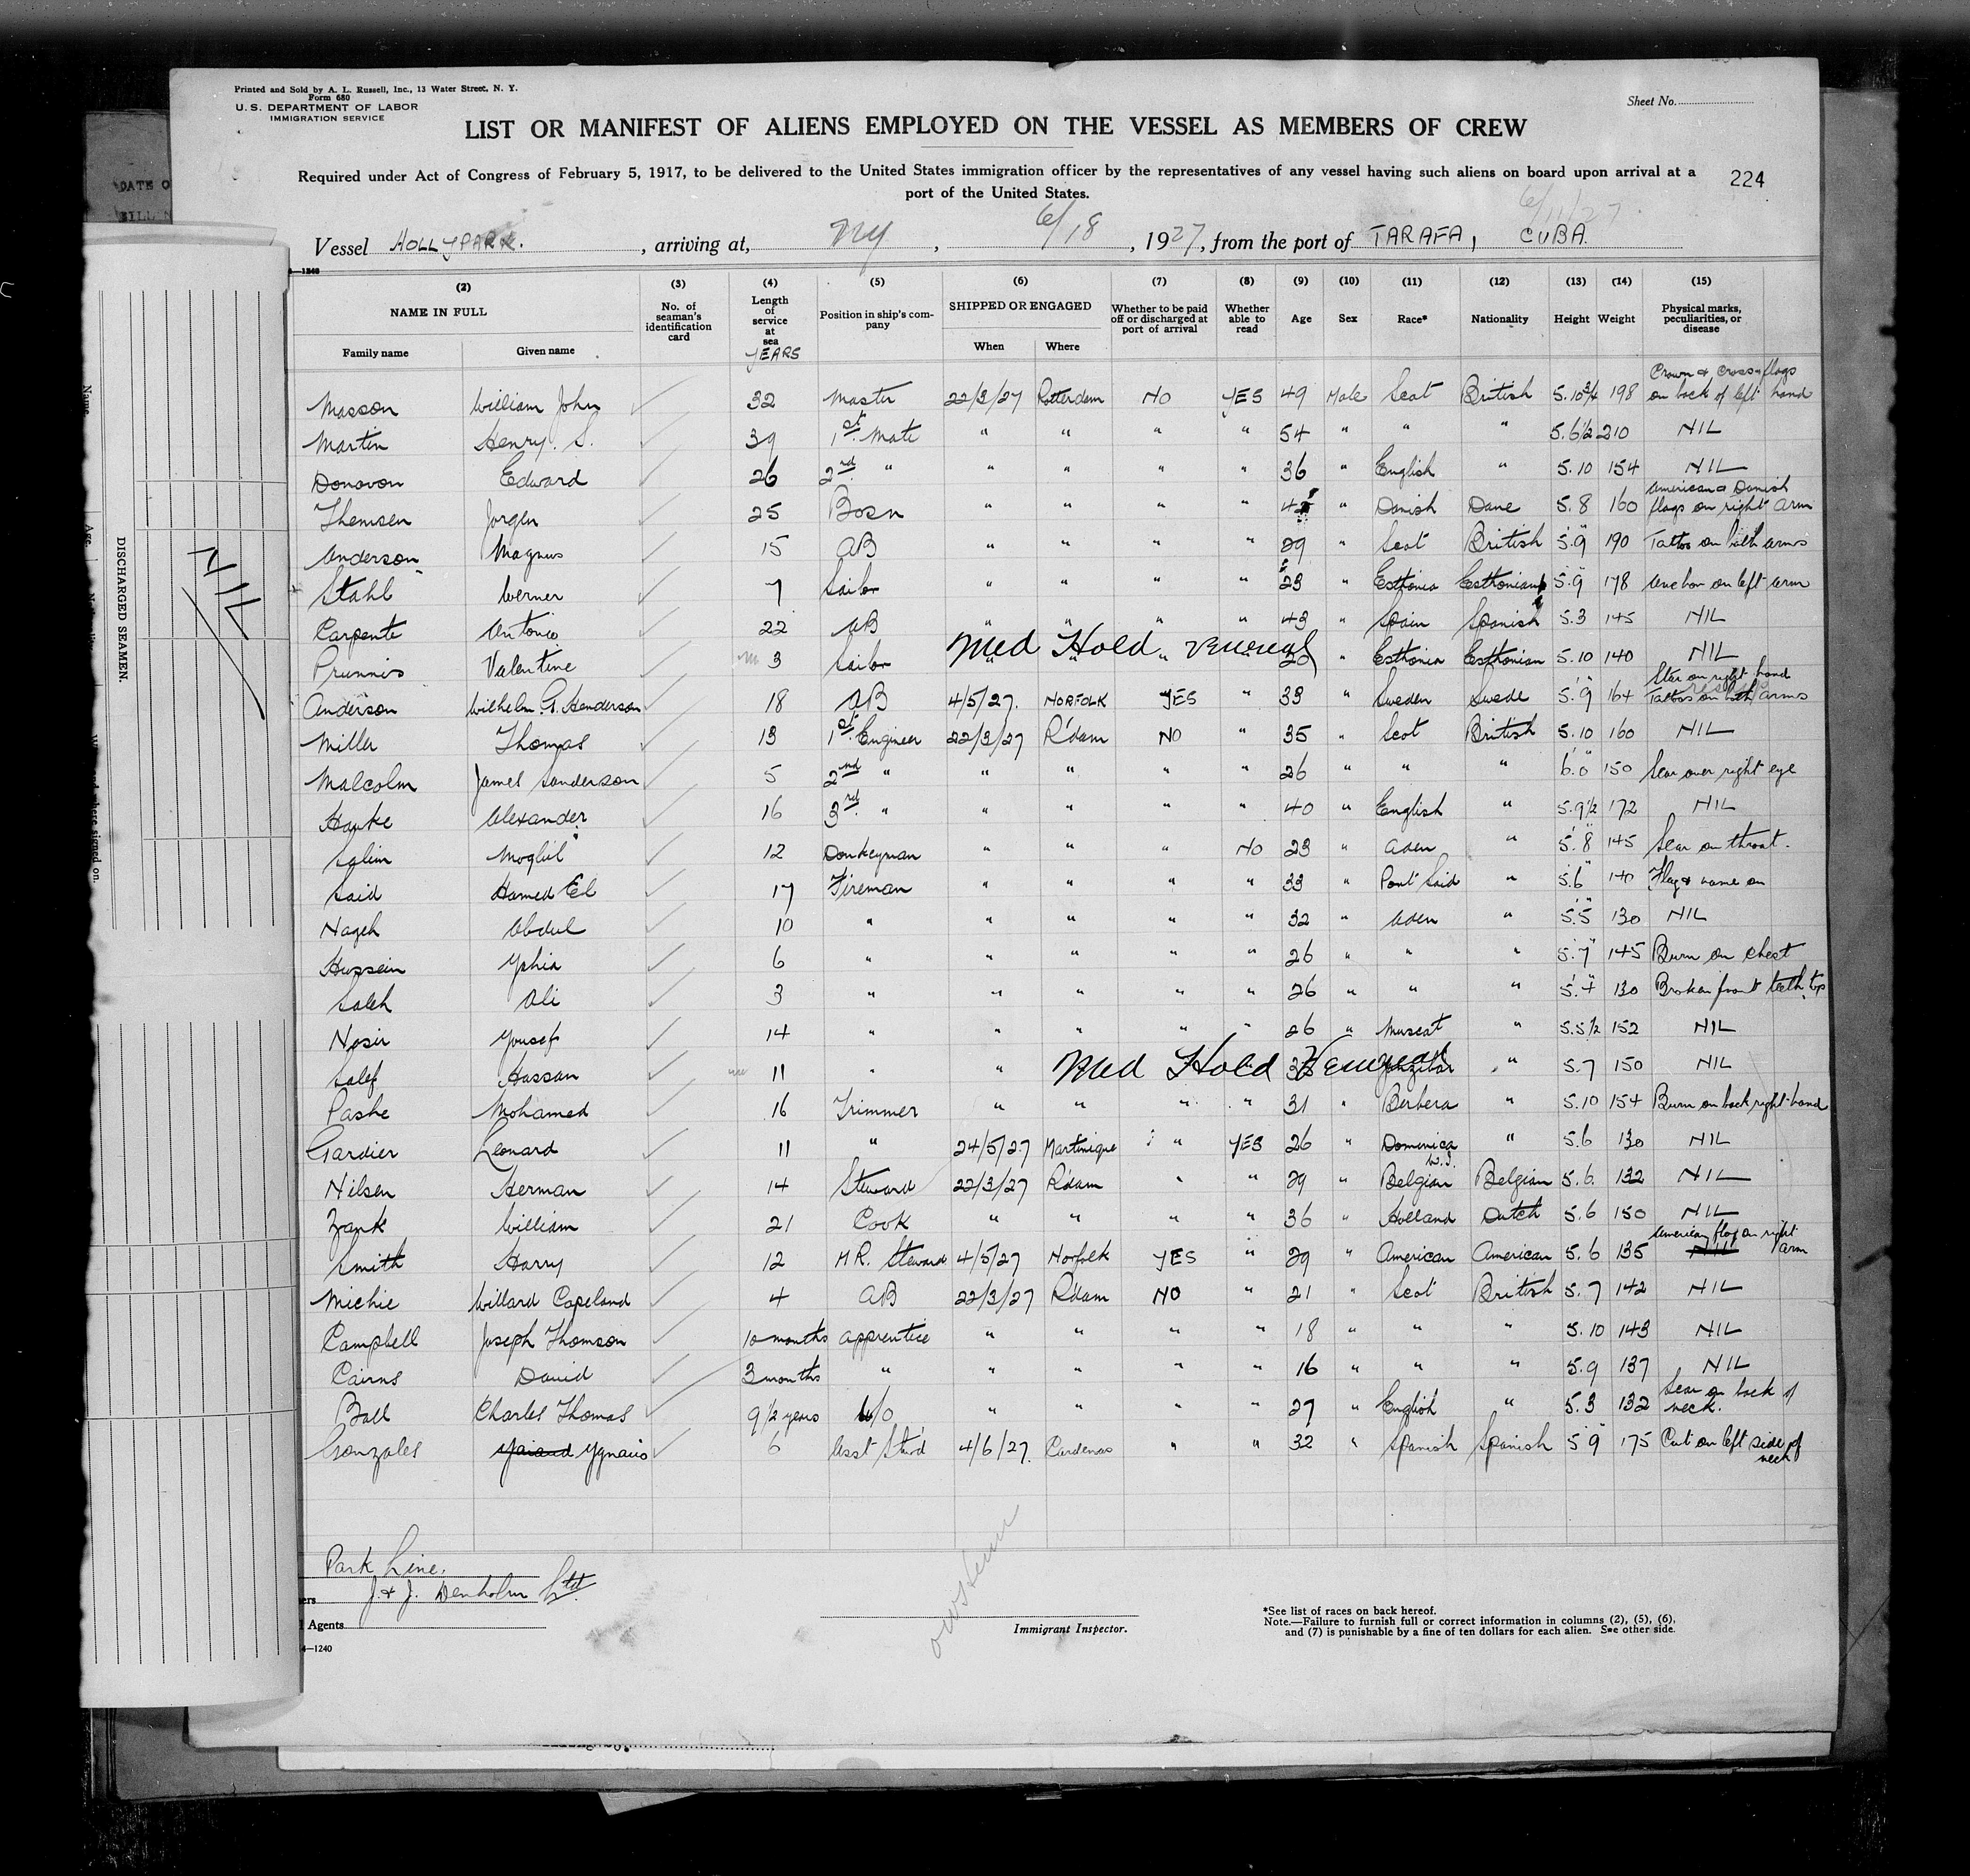 Printed and Sold by A. L. Russell, Inc., 13 Water Street, N. Y.
Form 680
U. S. DEPARTMENT OF LABOR
IMMIGRATION SERVICE
Sheet No.
LIST OR MANIFEST OF ALIENS EMPLOYED ON THE VESSEL AS MEMBERS OF CREW
Required under Act of Congress of February 5, 1917, to be delivered to the United States immigration officer by the representatives of any vessel having such aliens on board upon arrival at a
port of the United States.
224
6/11/27
Vessel HOLLYPARK. , arriving at, NY , 6/18 , 1927, from the port of TARAFA, CUBA.
(2) (3) (4) (5) (6) (7) (8) (9) (10) (11) (12) (13) (14) (15)
NAME IN FULL No. of seaman's identification card Length of service at sea YEARS Position in ship's company SHIPPED OR ENGAGED Whether to be paid off or discharged at port of arrival Whether able to read Age Sex Race* Nationality Height Weight Physical marks, peculiarities, or disease
Family name Given name When Where
Masson William John 32 Master 22/3/27 Rotterdam NO YES 49 Male Scot British 5.10 3/4 198 Crown & Cross flags on back of left hand
Martin Henry S. 39 1st Mate " " " " 54 " " " 5.6 1/2 210 NIL
Donovon Edward 26 2nd " " " " " 36 " English " 5.10 154 NIL
Themsen Jorgen 25 Bosn " " " " " Danish Dane 5.8 160 American & Danish flags on right arm
Anderson Magnus 15 AB " " " " 29 " Scot British 5.9 190 Tattoo on both arms
Stahl Werner 7 Sailor " " " " 23 " Esthonia Esthonian 5.9 178 Anchor on left arm
Carpente Antonio 22 AB " " " " 43 " Spain Spanish 5.3 145 NIL
Prunnis Valentine 3 Sailor " " " " 20 " Esthonia Esthonian 5.10 140 NIL
Med Hold Venereal
Anderson Wilhelm G. Henderson 18 AB 4/5/27. NORFOLK YES " 33 " Sweden Swede 5.9 164 Star on right hand Tattoos on both arms
Miller Thomas 13 1st Engineer 22/3/27 R'dam NO " 35 " Scot British 5.10 160 NIL
Malcolm James Sanderson 5 2nd " " " " " 26 " " " 6.0 150 Scar over right eye
Hawke Alexander 16 3rd " " " " " 40 " English " 5.9 1/2 172 NIL
Salim Moqbil 12 Donkeyman " " " NO 23 " Aden " 5.8 145 Scar on throat.
Said Hamed El 17 Fireman " " " " 33 " Port Said " 5.6 140 Flag & name on
Nageh Abdul 10 " " " " " 32 " Aden " 5.5 130 NIL
Hussein Yphia 6 " " " " " 26 " " " 5.7 145 Burn on chest
Saleh Ali 3 " " " " " 26 " " " 5.4 130 Broken front teeth top
Nosir Yousef 14 " " " " " 26 " Muscat " 5.5 1/2 152 NIL
Salef Hassan 11 " " " Zanzibar " 5.7 150 NIL
Med Hold Venereal
Pashe Mohamed 16 Trimmer " " " " 31 " Berbera " 5.10 154 Burn on back right hand
Gardier Leonard 11 " 24/5/27 Martinique " YES 26 " Dominica W.I. " 5.6 130 NIL
Nilsen Herman 14 Steward 22/3/27 R'dam " " 29 " Belgian Belgian 5.6. 132 NIL
Zank William 21 Cook " " " " 36 " Holland Dutch 5.6 150 NIL
Smith Harry 12 M R. Steward 4/5/27 Norfolk YES " 29 " American American 5.6 135 NIL American flag on right arm
Michie Willard Copeland 4 AB 22/3/27 R'dam NO " 21 " Scot British 5.7 142 NIL
Campbell Joseph Thomson 10 months apprentice " " " " 18 " " " 5.10 143 NIL
Cairns David 3 months " " " " " 16 " " " 5.9 137 NIL
Ball Charles Thomas 9 1/2 years W/O " " " " 27 " English " 5.3 132 Scar on back of neck.
Gonzales Ygnacio 6 Asst Stw'd 4/6/27. Cardenas " " 32 " Spanish Spanish 5.9 175 Cut on left side of neck
Park Line.
J. & J. Denholm Ltd
Agents
4—1240
Immigrant Inspector.
*See list of races on back hereof.
Note.—Failure to furnish full or correct information in columns (2), (5), (6),
and (7) is punishable by a fine of ten dollars for each alien. See other side.
DISCHARGED SEAMEN.
NIL
Name
Age.
where signed on.
DATE O